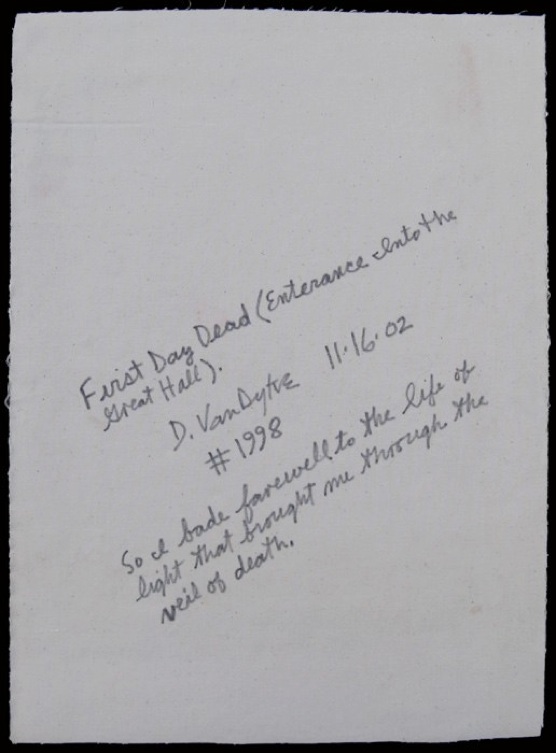 First Day Dead (Enterance Into the
Great Hall).
D. VanDyke 11·16·02
#1998
So I bade farewell to the life of
light that brought me through the
veil of death.